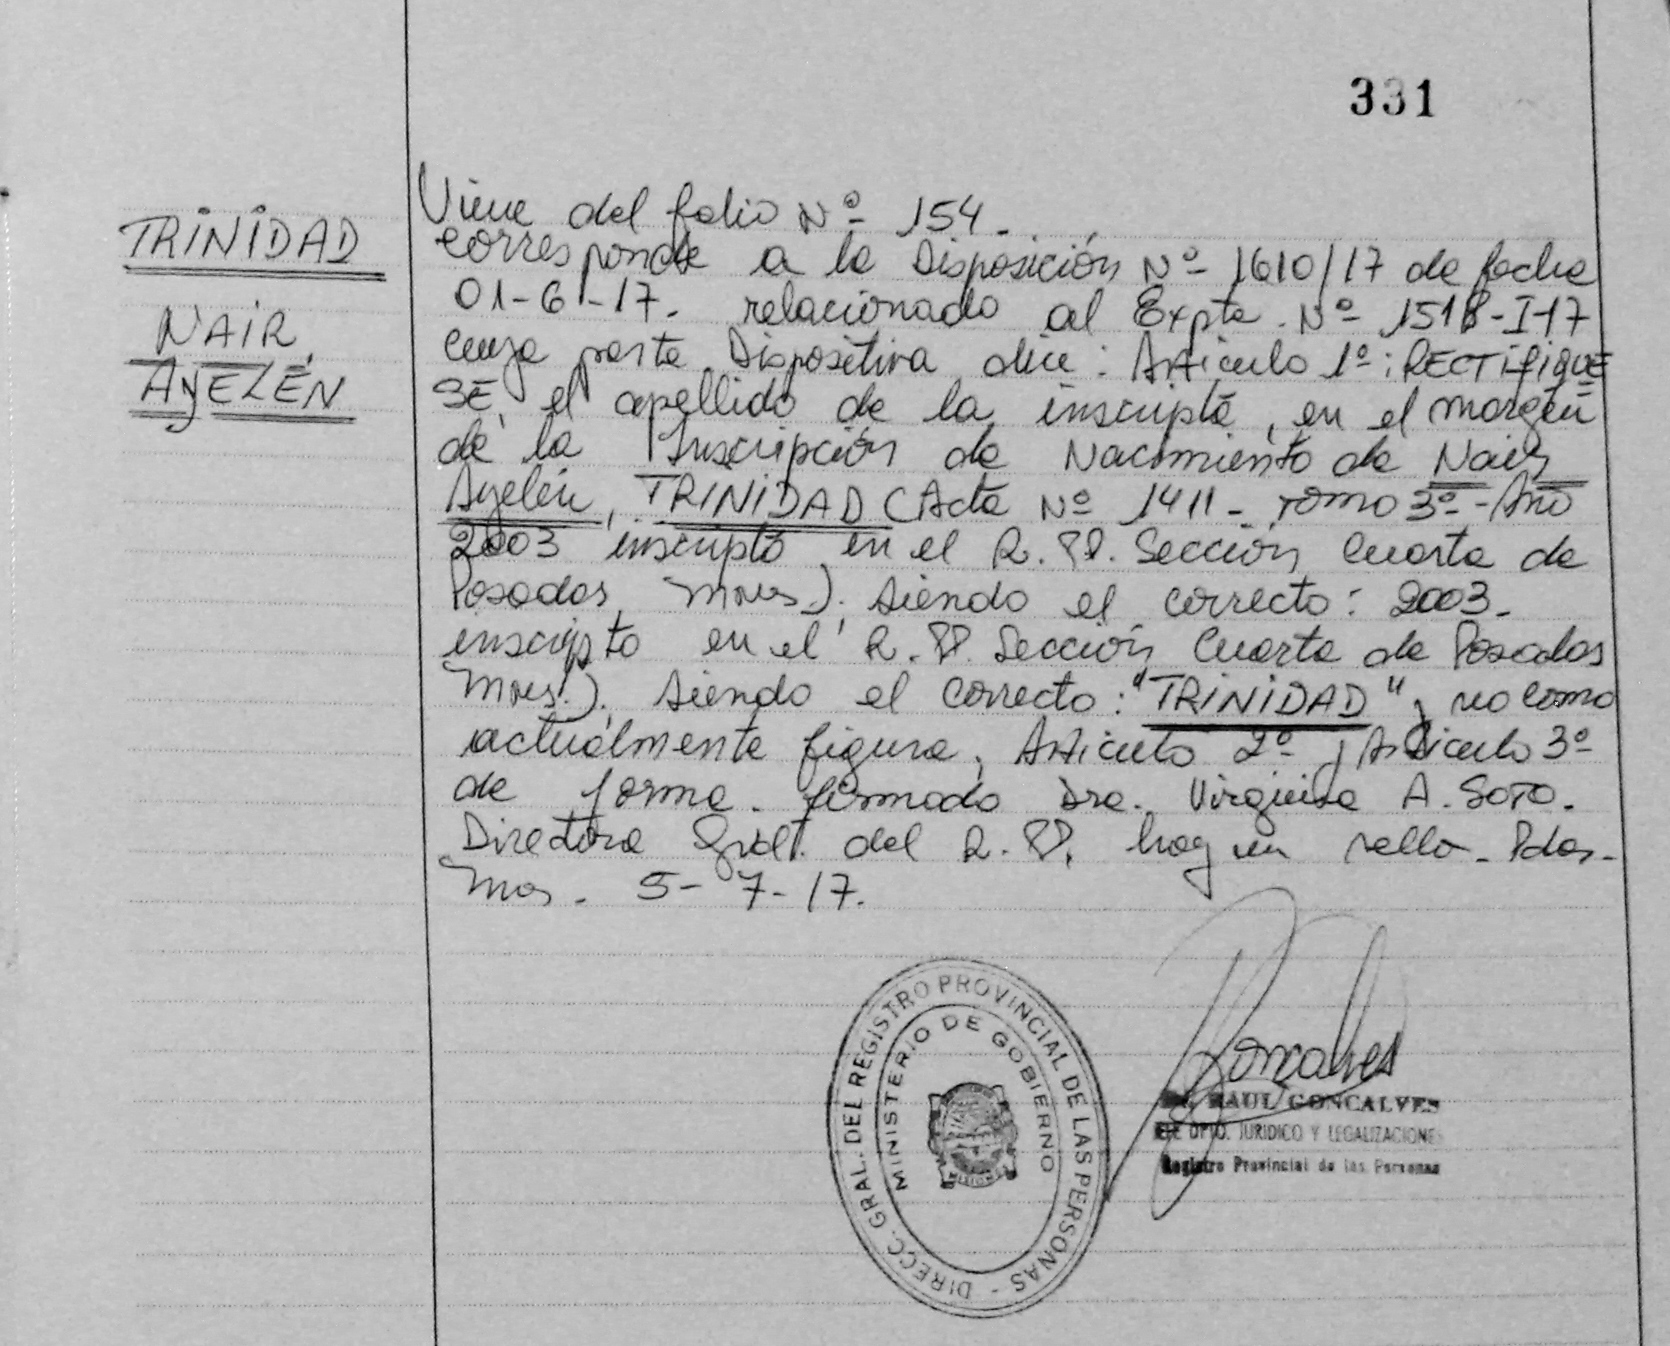 331
TRINIDAD
NAIR,
AYELÉN
Viene del folio Nº 154.
Corresponde a la Disposición Nº 1610/17 de fecha
01-6-17. relacionado al Expte. Nº 1518-I-17
cuya parte Dispositiva dice: Artículo 1º: RECTIFIQUE
SE, el apellido de la inscripta, en el margen
de la Inscripción de Nacimiento de Nair,
Ayelén, TRINIDAD (Acta Nº 1411 - Tomo 3º - Año
2003 inscripto en el R.PP. Sección Cuarta de
Posadas, Mnes). siendo el correcto: 2003.
inscripto en el R.PP. Sección Cuarta de Posadas
Mnes.). siendo el correcto: "TRINIDAD" y no como
actualmente figura, Artículo 2º y Artículo 3º
de forma. firmado Dra. Virginia A. SOTO.
Directora Gral. del R.PP. hay un sello - Pdas.-
Mns. 5-7-17.
DIRECC. GRAL. DEL REGISTRO PROVINCIAL DE LAS PERSONAS -
MINISTERIO DE GOBIERNO
MISIONES
Goncalves
RAUL GONCALVES
DPTO. JURIDICO Y LEGALIZACIONES
Registro Provincial de las Personas